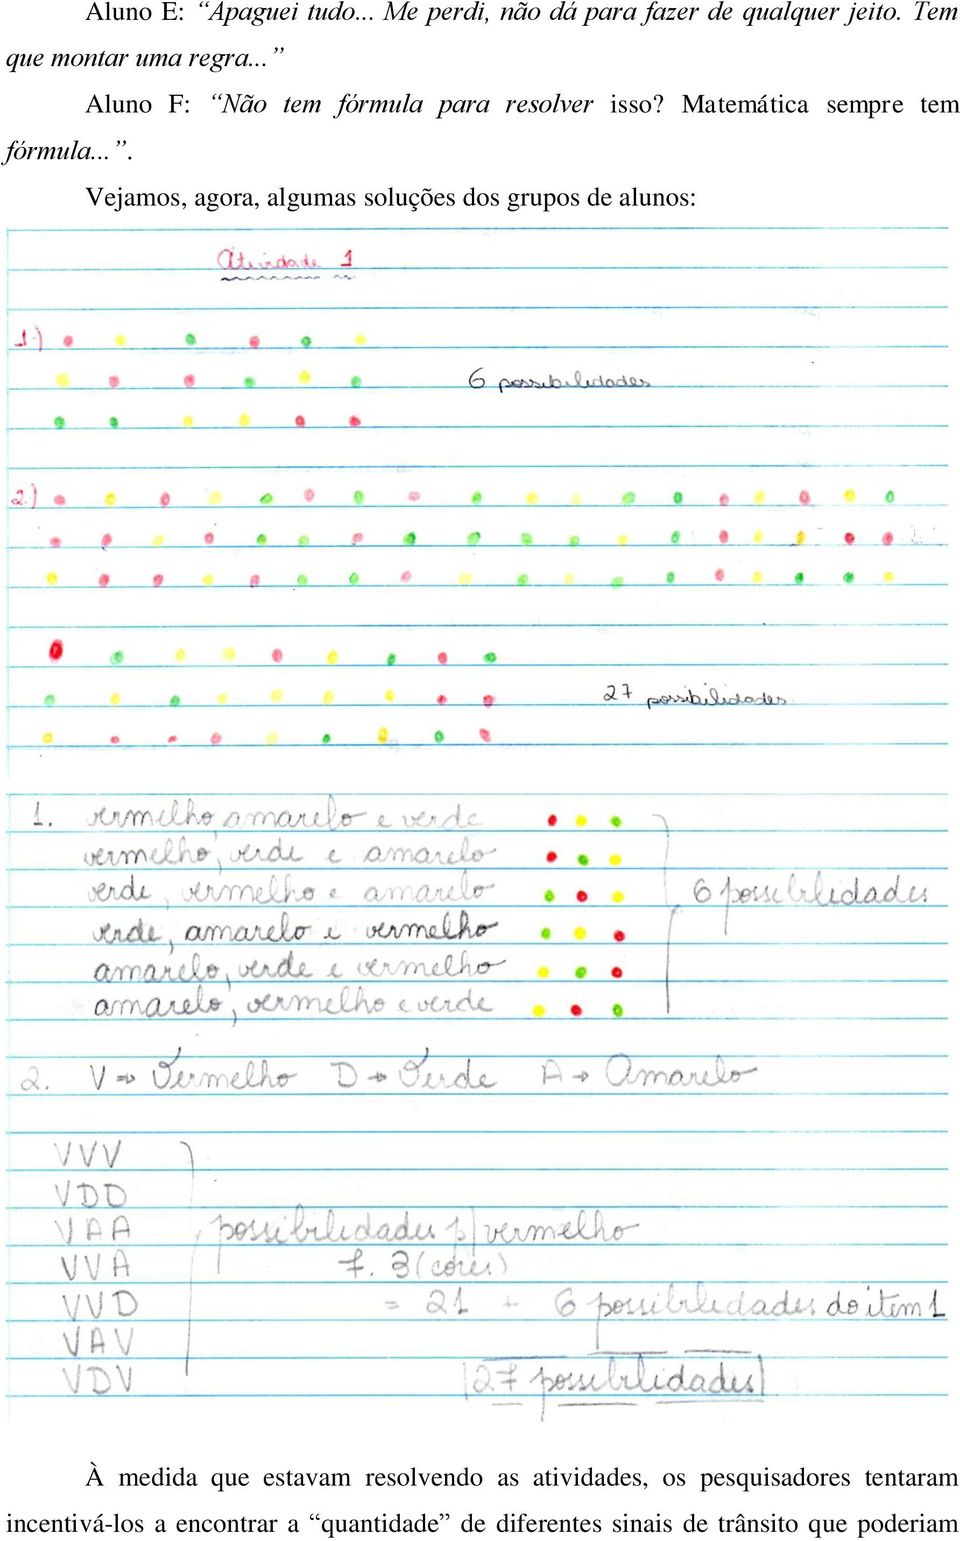 Aluno E: “Apaguei tudo... Me perdi, não dá para fazer de qualquer jeito. Tem
que montar uma regra...”
Aluno F: “Não tem fórmula para resolver isso? Matemática sempre tem
fórmula...”.
Vejamos, agora, algumas soluções dos grupos de alunos:
Atividade 1
1-)
6 possibilidades
2-)
27 possibilidades.
1. vermelho, amarelo e verde
vermelho, verde e amarelo
verde, vermelho e amarelo
verde, amarelo e vermelho
amarelo, verde e vermelho
amarelo, vermelho e verde
6 possibilidades
2. V → Vermelho D → Verde A → Amarelo
VVV
VDD
VAA
VVA
VVD
VAV
VDV
possibilidades p/ vermelho
7. 3 (cores)
= 21 + 6 possibilidades do item 1
27 possibilidades
À medida que estavam resolvendo as atividades, os pesquisadores tentaram
incentivá-los a encontrar a “quantidade” de diferentes sinais de trânsito que poderiam